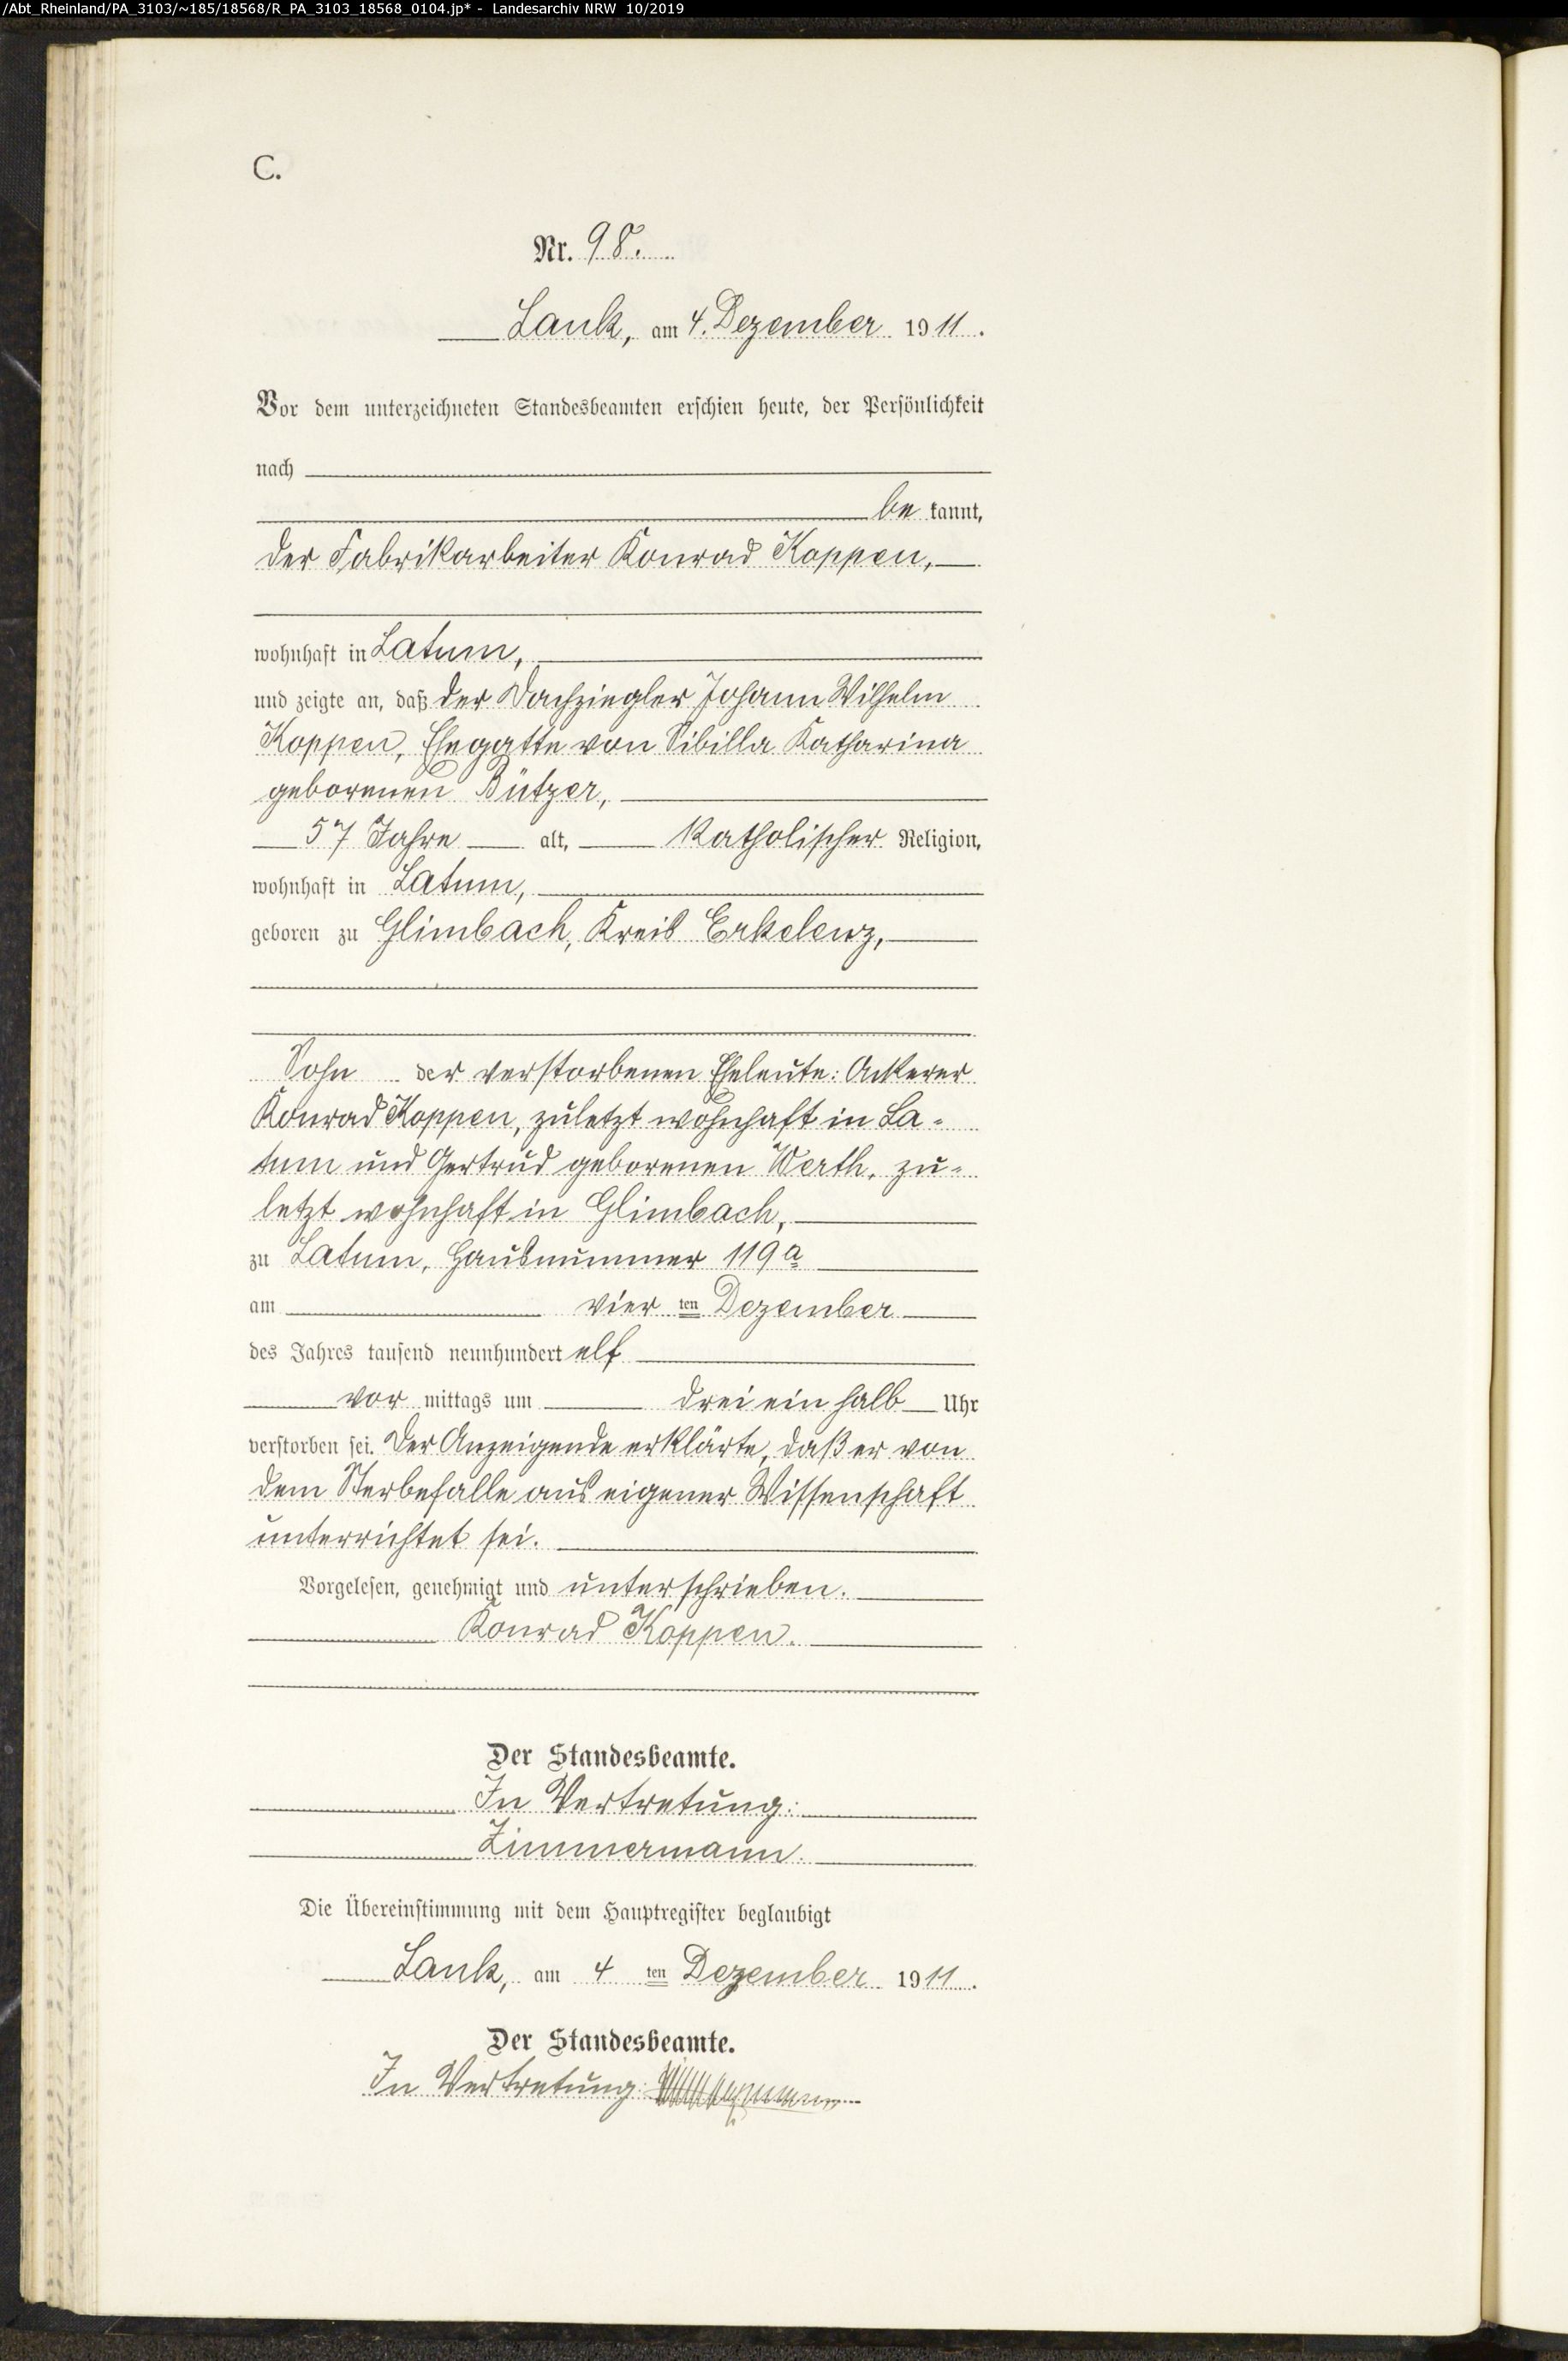 /Abt_Rheinland/PA_3103/~185/18568/R_PA_3103_18568_0104.jp* - Landesarchiv NRW 10/2019
C.
Nr. 98.
Lank, am 4. Dezember 1911.
Vor dem unterzeichneten Standesbeamten erschien heute, der Persönlichkeit
nach
be kannt,
der Fabrikarbeiter Konrad Koppen,
wohnhaft in Latum,
und zeigte an, daß der Dachziegler Johann Wilhelm
Koppen, Ehegatte von Sibilla Katharina
geborenen Bützer,
57 Jahre alt, katholischer Religion,
wohnhaft in Latum,
geboren zu Glimbach, Kreis Erkelenz,
Sohn der verstorbenen Eheleute: Ackerer
Konrad Koppen, zuletzt wohnhaft in La-
tum und Gertrud geborenen Werth, zu-
letzt wohnhaft in Glimbach,
zu Latum, Hausnummer 119a
am vier ten Dezember
des Jahres tausend neunhundert elf
vor mittags um drei ein halb Uhr
verstorben sei. Der Anzeigende erklärte, daß er von
dem Sterbefalle aus eigener Wissenschaft
unterrichtet sei.
Vorgelesen, genehmigt und unterschrieben.
Konrad Koppen.
Der Standesbeamte.
In Vertretung:
Zimmermann.
Die Übereinstimmung mit dem Hauptregister beglaubigt
Lank, am 4 ten Dezember 1911.
Der Standesbeamte.
In Vertretung: